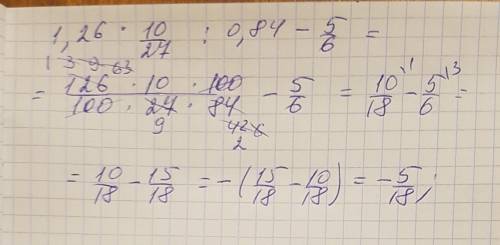 1,26 · 10/27 : 0,84 − 5/6 =
1 3 9 63
= 126 · 10 · 100 / 100 · 27 · 84 − 5/6 = 10/18 \1 − 5/6 \3 =
9 42 6
2
= 10/18 − 15/18 = −(15/18 − 10/18) = −5/18;